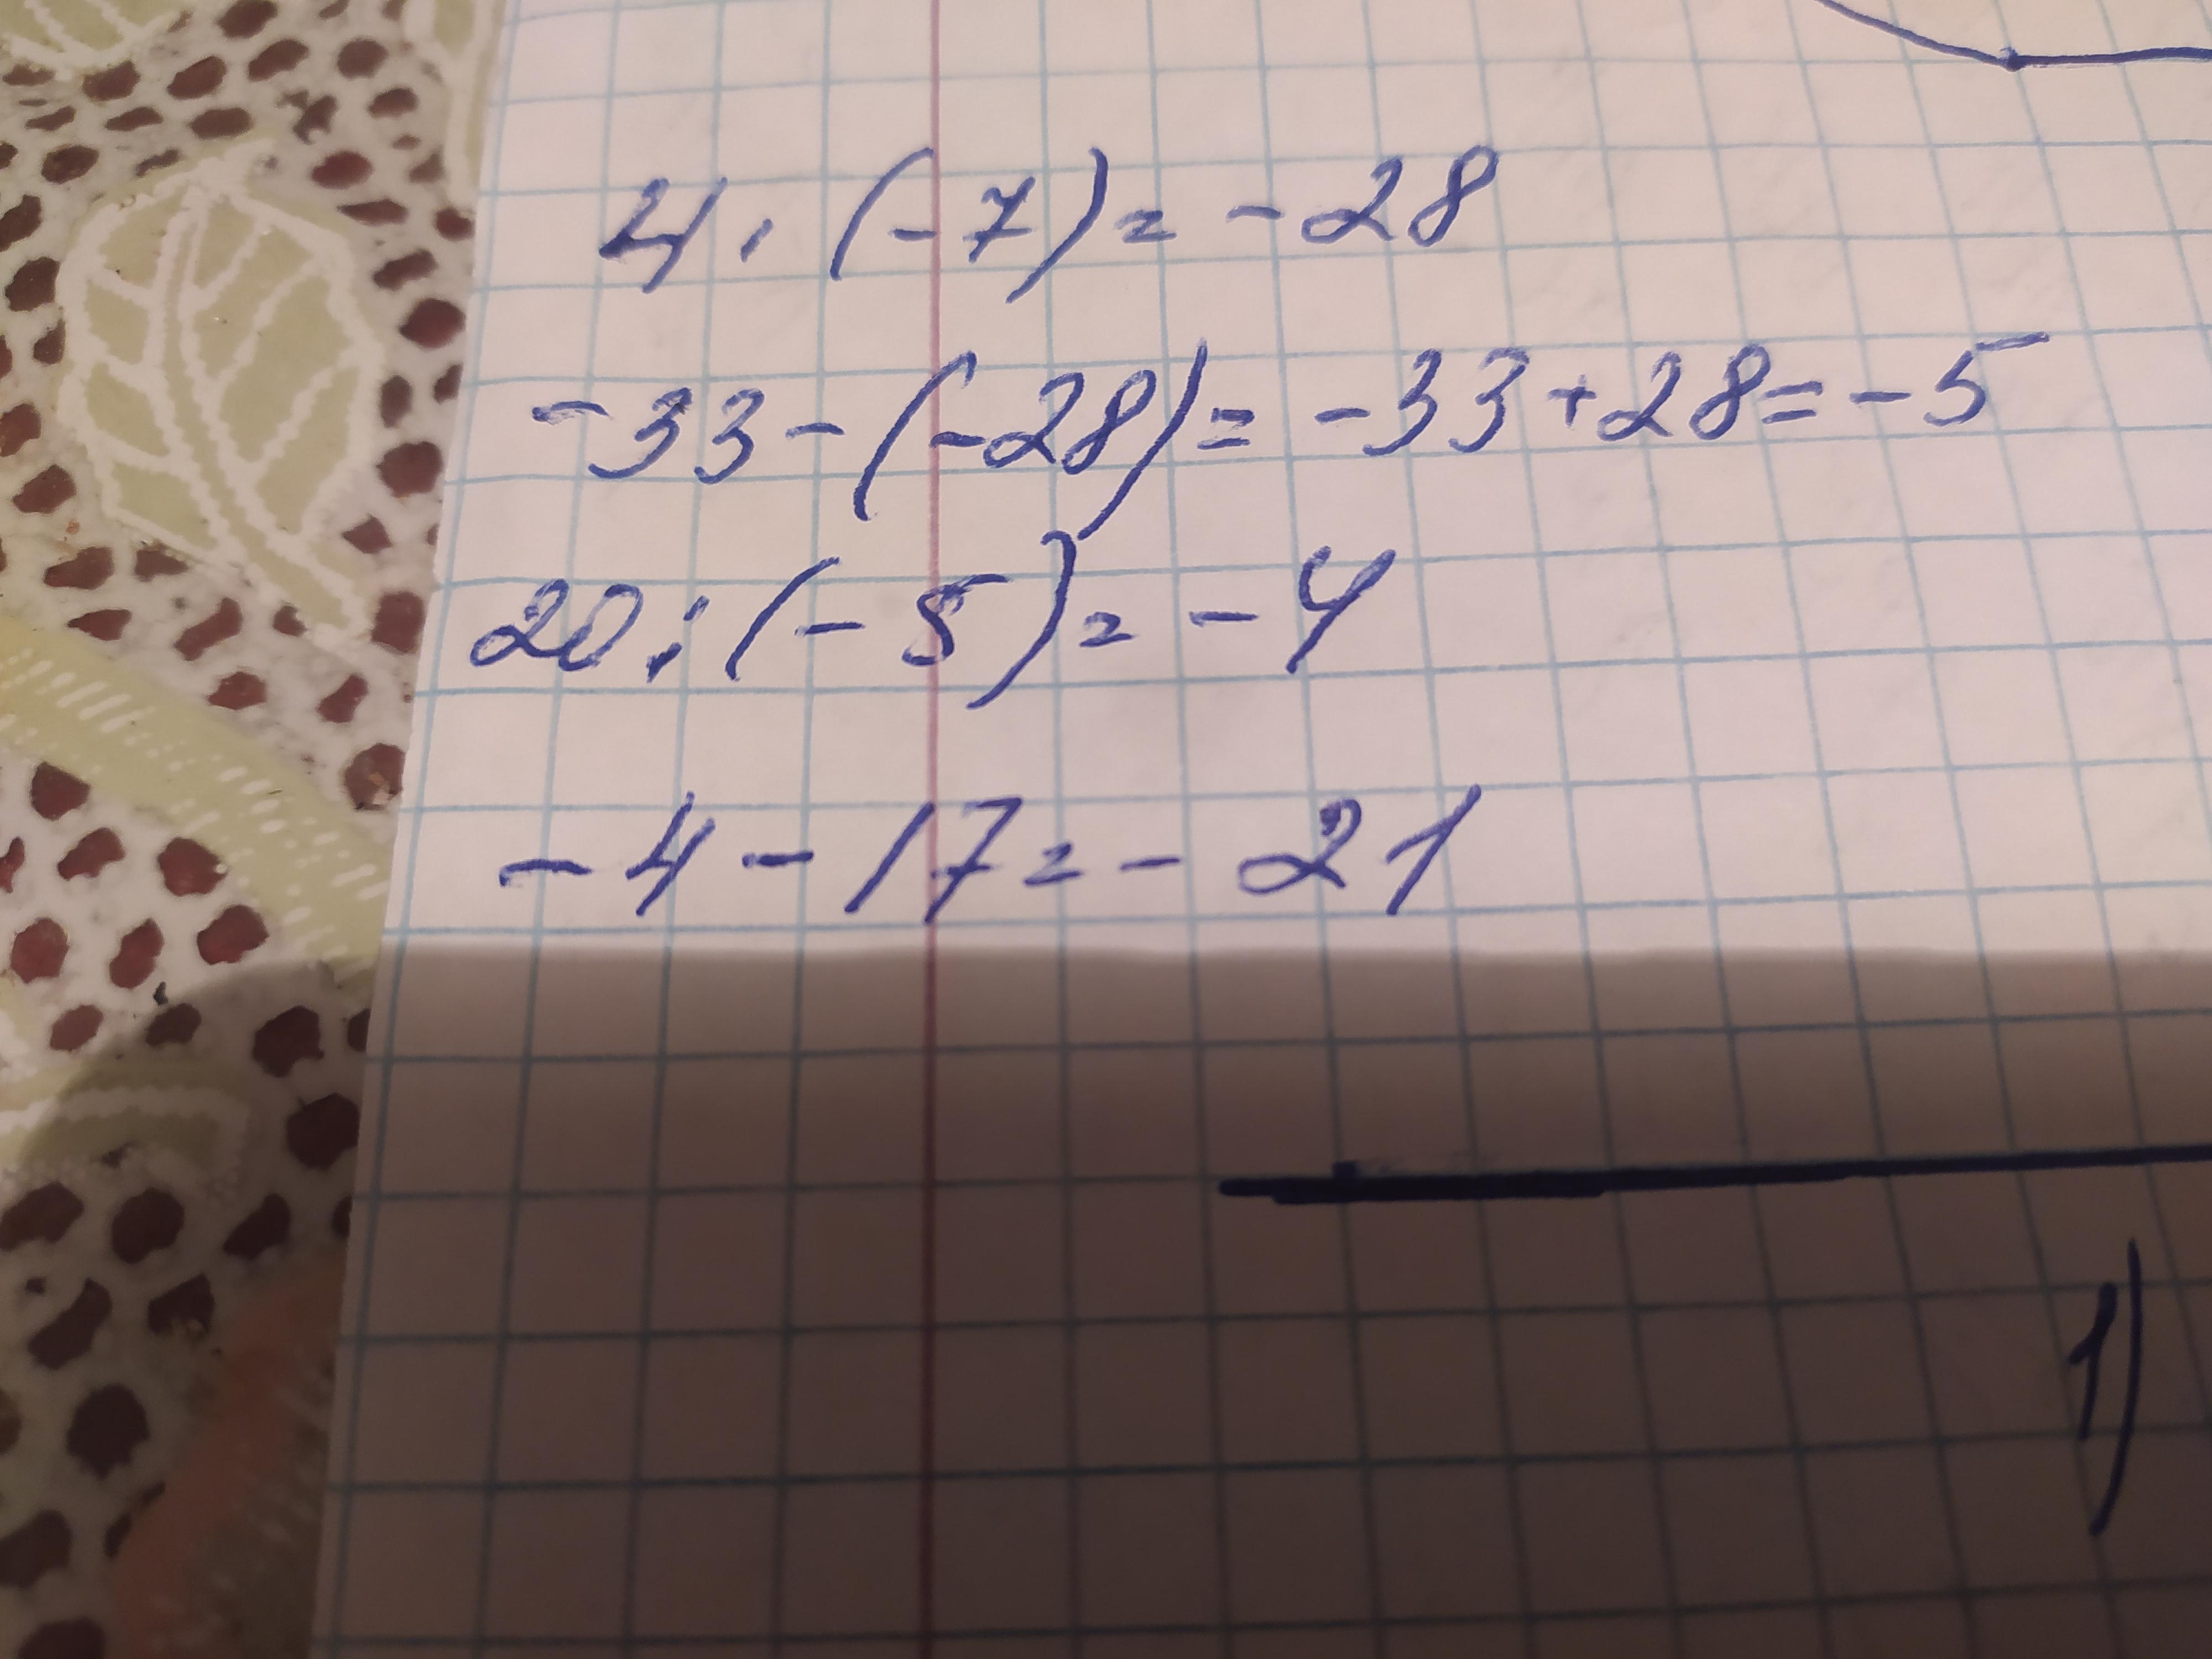 4 · (-7) = -28
-33 - (-28) = -33 + 28 = -5
20 : (-5) = -4
-4 - 17 = -21
1)